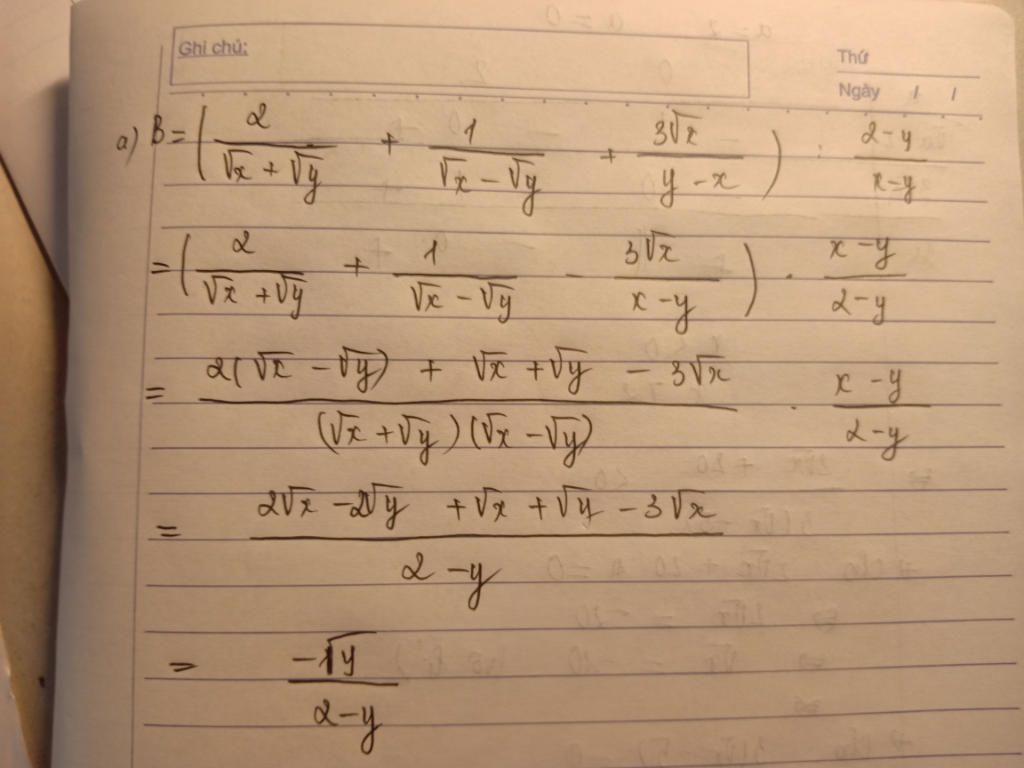 Ghi chú:
Thứ
Ngày / /
a) B = ( 2/(√x + √y) + 1/(√x − √y) + 3√x/(y − x) ) : (2 − y)/(x − y)
= ( 2/(√x + √y) + 1/(√x − √y) − 3√x/(x − y) ) . (x − y)/(2 − y)
= (2(√x − √y) + √x + √y − 3√x)/((√x + √y)(√x − √y)) . (x − y)/(2 − y)
= (2√x − 2√y + √x + √y − 3√x)/(2 − y)
= −√y/(2 − y)